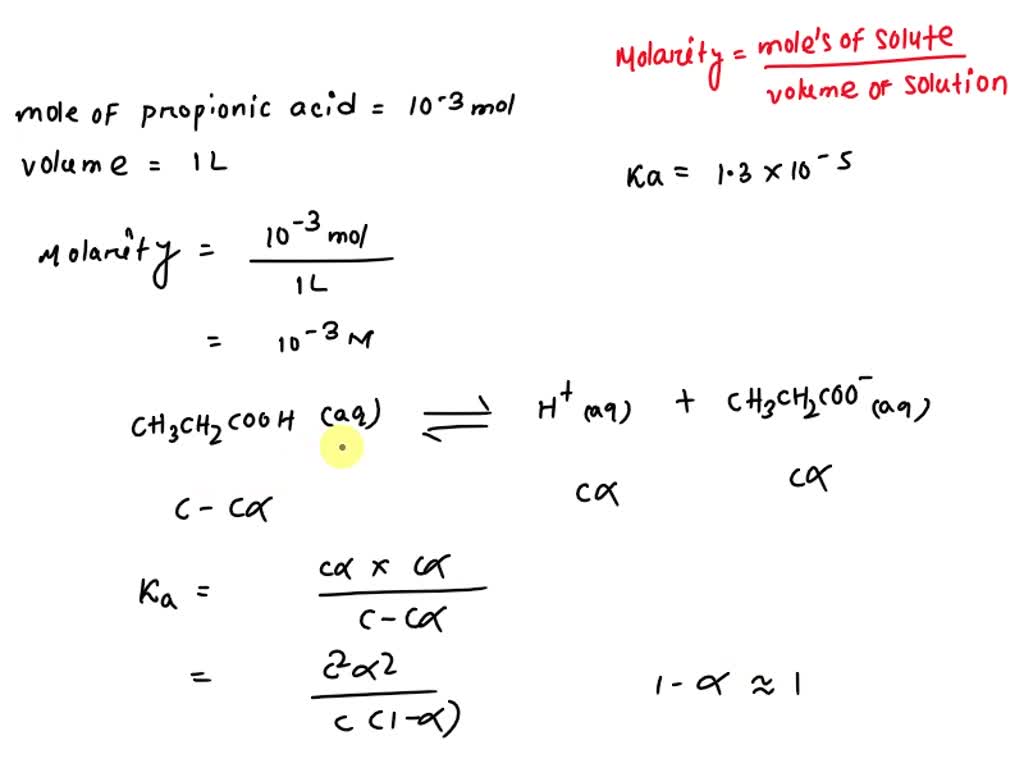 Molarity = mole's of solute / volume of solution
mole of propionic acid = 10⁻³ mol
volume = 1L
Ka = 1.3 × 10⁻⁵
Molarity = 10⁻³ mol / 1L
= 10⁻³ M
CH₃CH₂COOH (aq) ⇌ H⁺ (aq) + CH₃CH₂COO⁻ (aq)
C - Cα Cα Cα
Ka = Cα × Cα / C - Cα
= C²α² / C (1-α) 1 - α ≈ 1